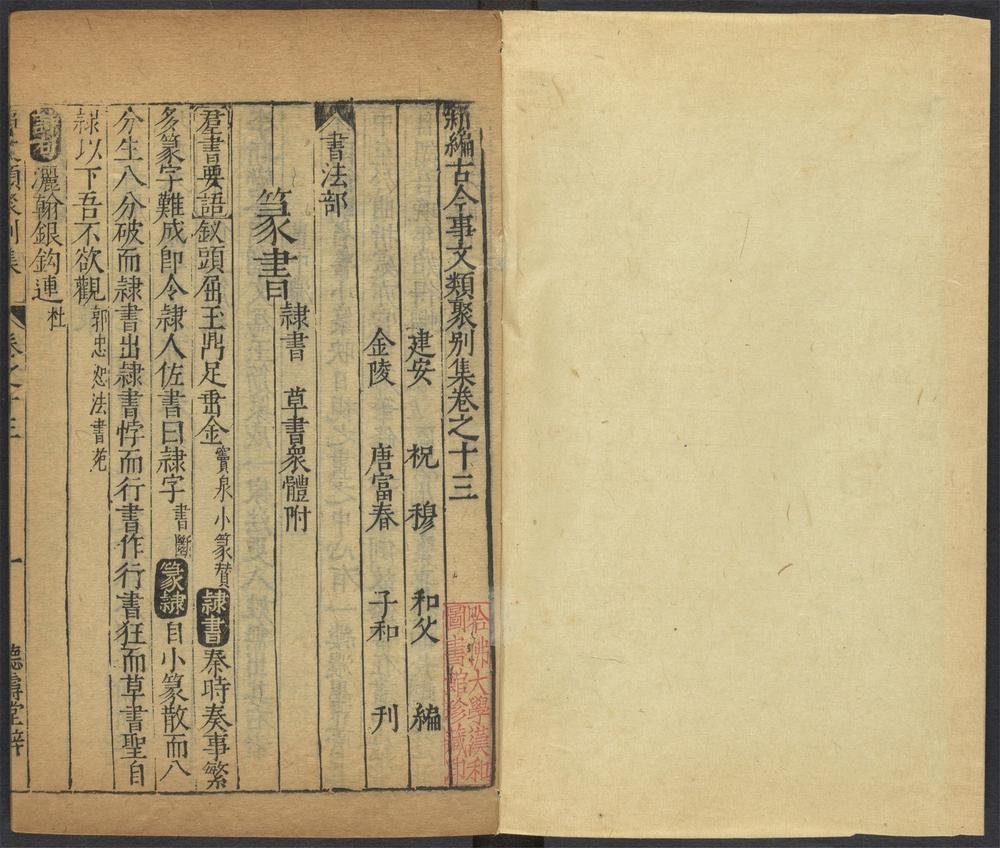 新編古今事文類聚别集卷之十三
建安 祝 穆 和父 編
金陵 唐富春 子和 刊
書法部
篆書 隸書 草書衆體附
羣書要語 釵頭屈玉鼎足垂金 竇泉小篆賛 隸書 秦時奏事繁
多篆字難成即令隸人佐書曰隸字 書斷 篆隸 自小篆散而八
分生八分破而隸書出隸書悖而行書作行書狂而草書聖自
隸以下吾不欲觀 郭忠恕法書苑
詩句 灑翰銀鈎連 杜
事文類聚别集 卷之十三 一 德壽堂梓
哈佛大學漢和
圖書館珍藏印